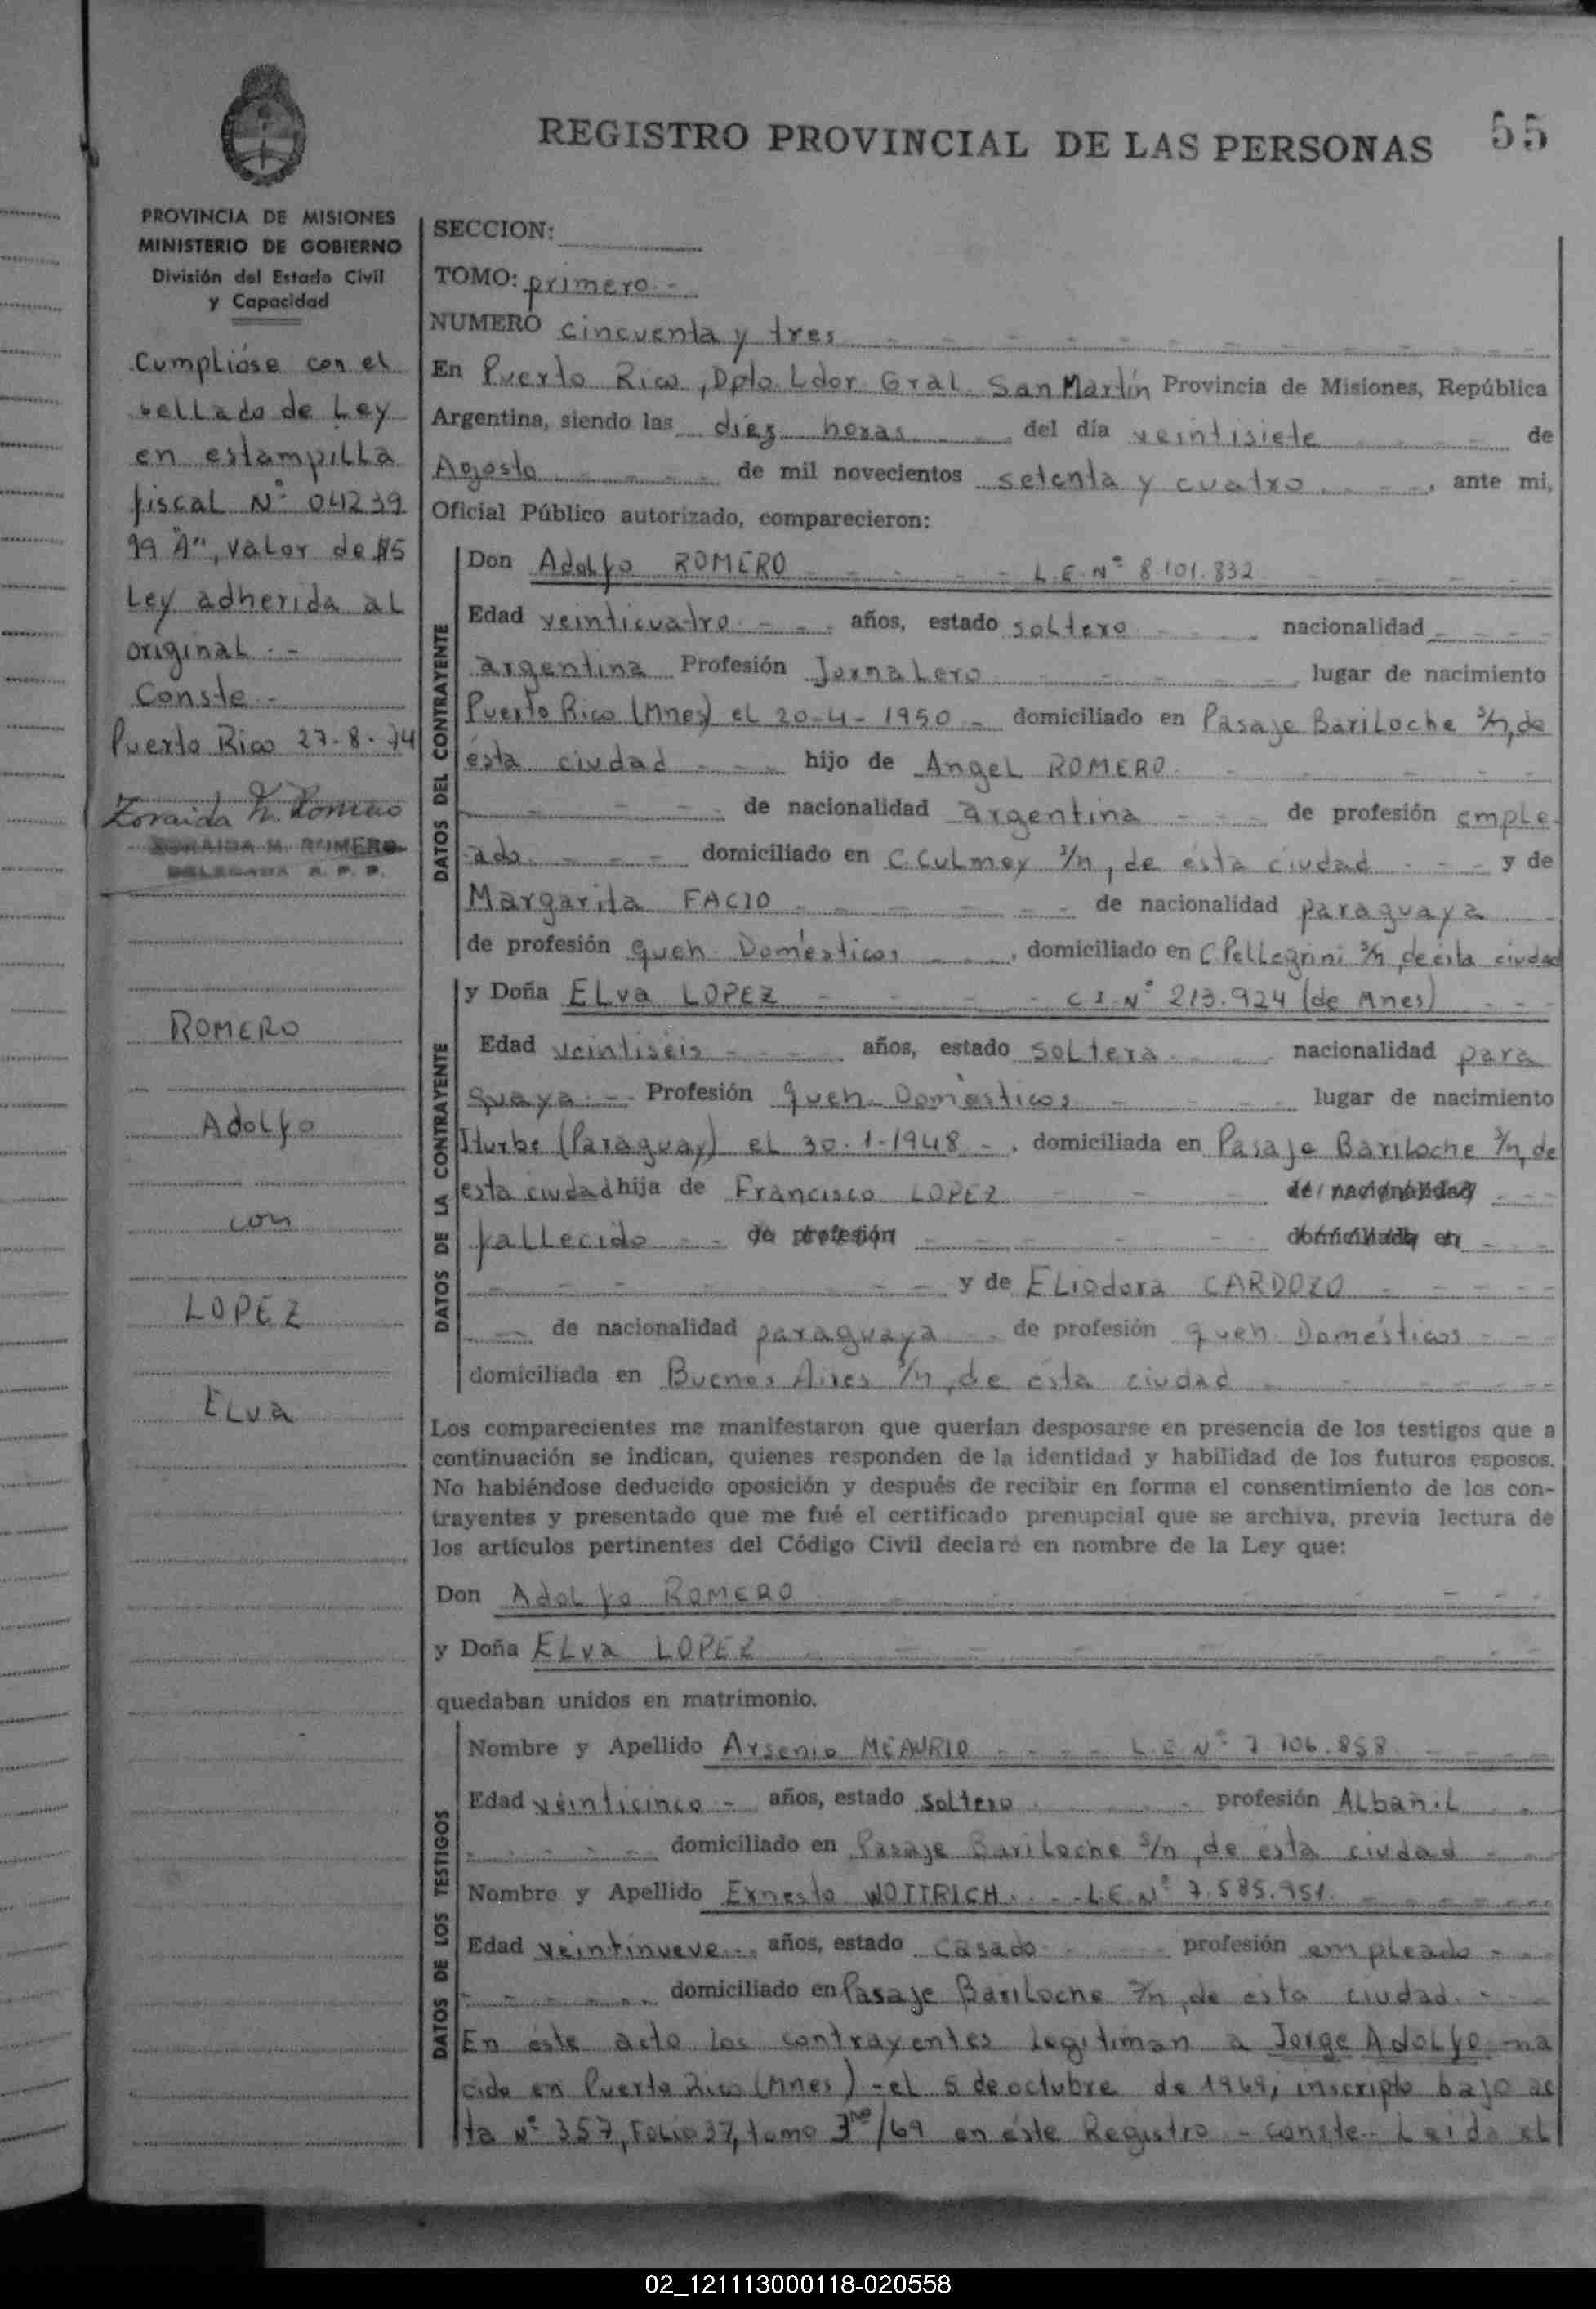 REGISTRO PROVINCIAL DE LAS PERSONAS 55
PROVINCIA DE MISIONES
MINISTERIO DE GOBIERNO
División del Estado Civil
y Capacidad
Cumplióse con el
sellado de Ley
en estampilla
fiscal Nº 041239
99 "A", valor de $5
Ley adherida al
original.-
Conste.-
Puerto Rico 27-8-74
Zoraida M. Romero
ZORAIDA M. ROMERO
DELEGADA R. P. P.
ROMERO
Adolfo
con
LOPEZ
Elva
SECCION:
TOMO: primero.-
NUMERO cincuenta y tres
En Puerto Rico, Dpto. Ldor. Gral. San Martín Provincia de Misiones, República
Argentina, siendo las diez horas del día veintisiete de
Agosto de mil novecientos setenta y cuatro, ante mi,
Oficial Público autorizado, comparecieron:
DATOS DEL CONTRAYENTE
Don Adolfo ROMERO L.E.Nº 8.101.832
Edad veinticuatro años, estado soltero nacionalidad
argentina Profesión Jornalero lugar de nacimiento
Puerto Rico (Mnes) el 20-4-1950 - domiciliado en Pasaje Bariloche s/n, de
ésta ciudad hijo de Angel ROMERO
de nacionalidad argentina de profesión emple-
ado domiciliado en C. Culmey s/n, de ésta ciudad y de
Margarita FACIO de nacionalidad paraguaya
de profesión queh. Domésticos, domiciliado en C. Pellegrini s/n, de ésta ciudad
DATOS DE LA CONTRAYENTE
y Doña Elva LOPEZ C.I.Nº 213.924 (de Mnes)
Edad veintiseis años, estado soltera nacionalidad para
guaya.- Profesión queh. Domésticos lugar de nacimiento
Iturbe (Paraguay) el 30-1-1948 -, domiciliada en Pasaje Bariloche s/n, de
esta ciudad hija de Francisco LOPEZ de nacionalidad
fallecido de profesión domiciliado en
y de Eliodora CARDOZO
de nacionalidad paraguaya de profesión queh. Domésticos
domiciliada en Buenos Aires s/n, de ésta ciudad
Los comparecientes me manifestaron que querían desposarse en presencia de los testigos que a
continuación se indican, quienes responden de la identidad y habilidad de los futuros esposos.
No habiéndose deducido oposición y después de recibir en forma el consentimiento de los con-
trayentes y presentado que me fué el certificado prenupcial que se archiva, previa lectura de
los artículos pertinentes del Código Civil declaré en nombre de la Ley que:
Don Adolfo ROMERO
y Doña Elva LOPEZ
quedaban unidos en matrimonio.
DATOS DE LOS TESTIGOS
Nombre y Apellido Arsenio MEAURIO L.E.Nº 7.706.858
Edad veinticinco años, estado soltero profesión Albañil
domiciliado en Pasaje Bariloche s/n, de ésta ciudad
Nombre y Apellido Ernesto WOTTRICH L.E.Nº 7.585.951
Edad veintinueve años, estado casado profesión empleado
domiciliado en Pasaje Bariloche s/n, de ésta ciudad
En este acto los contrayentes legitiman a Jorge Adolfo na
cido en Puerto Rico (Mnes) - el 5 de octubre de 1969, inscripto bajo ac
ta Nº 357, Folio 37, tomo 3ro/69 en éste Registro - conste.- Leida el
02_121113000118-020558